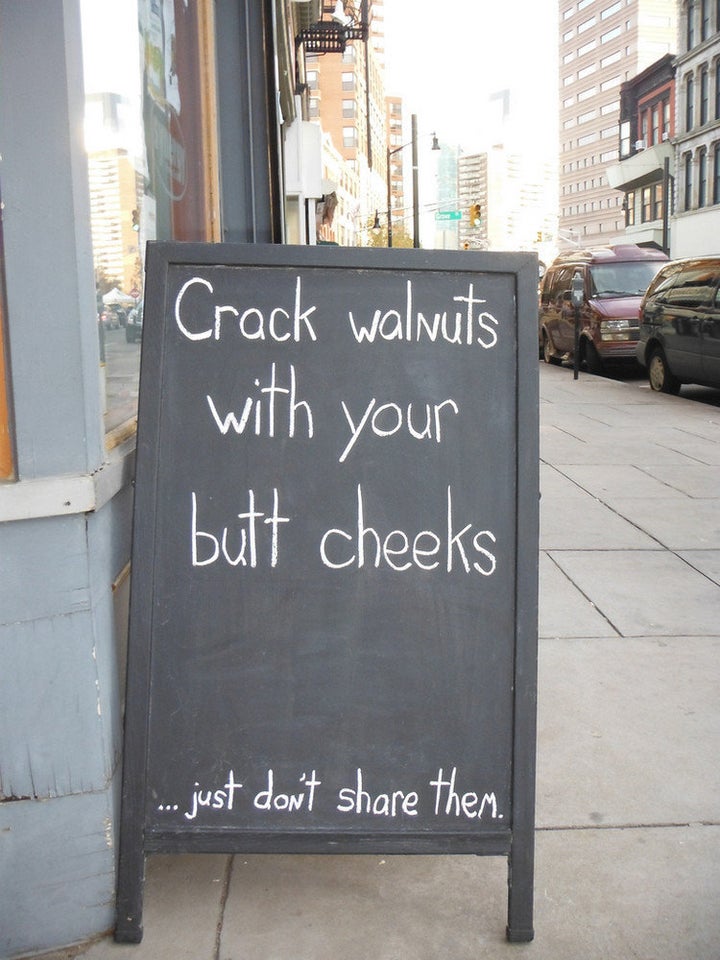 Crack walnuts
with your
butt cheeks
... just don't share them.